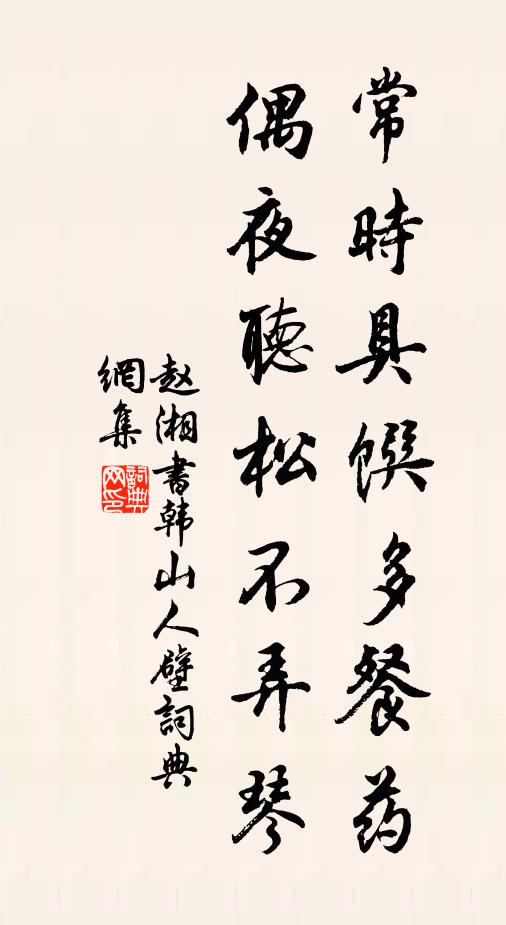 常時具馔多餐药
偶夜聽松不弄琴
赵湘書韩山人壁詞典
網集
詞典網印